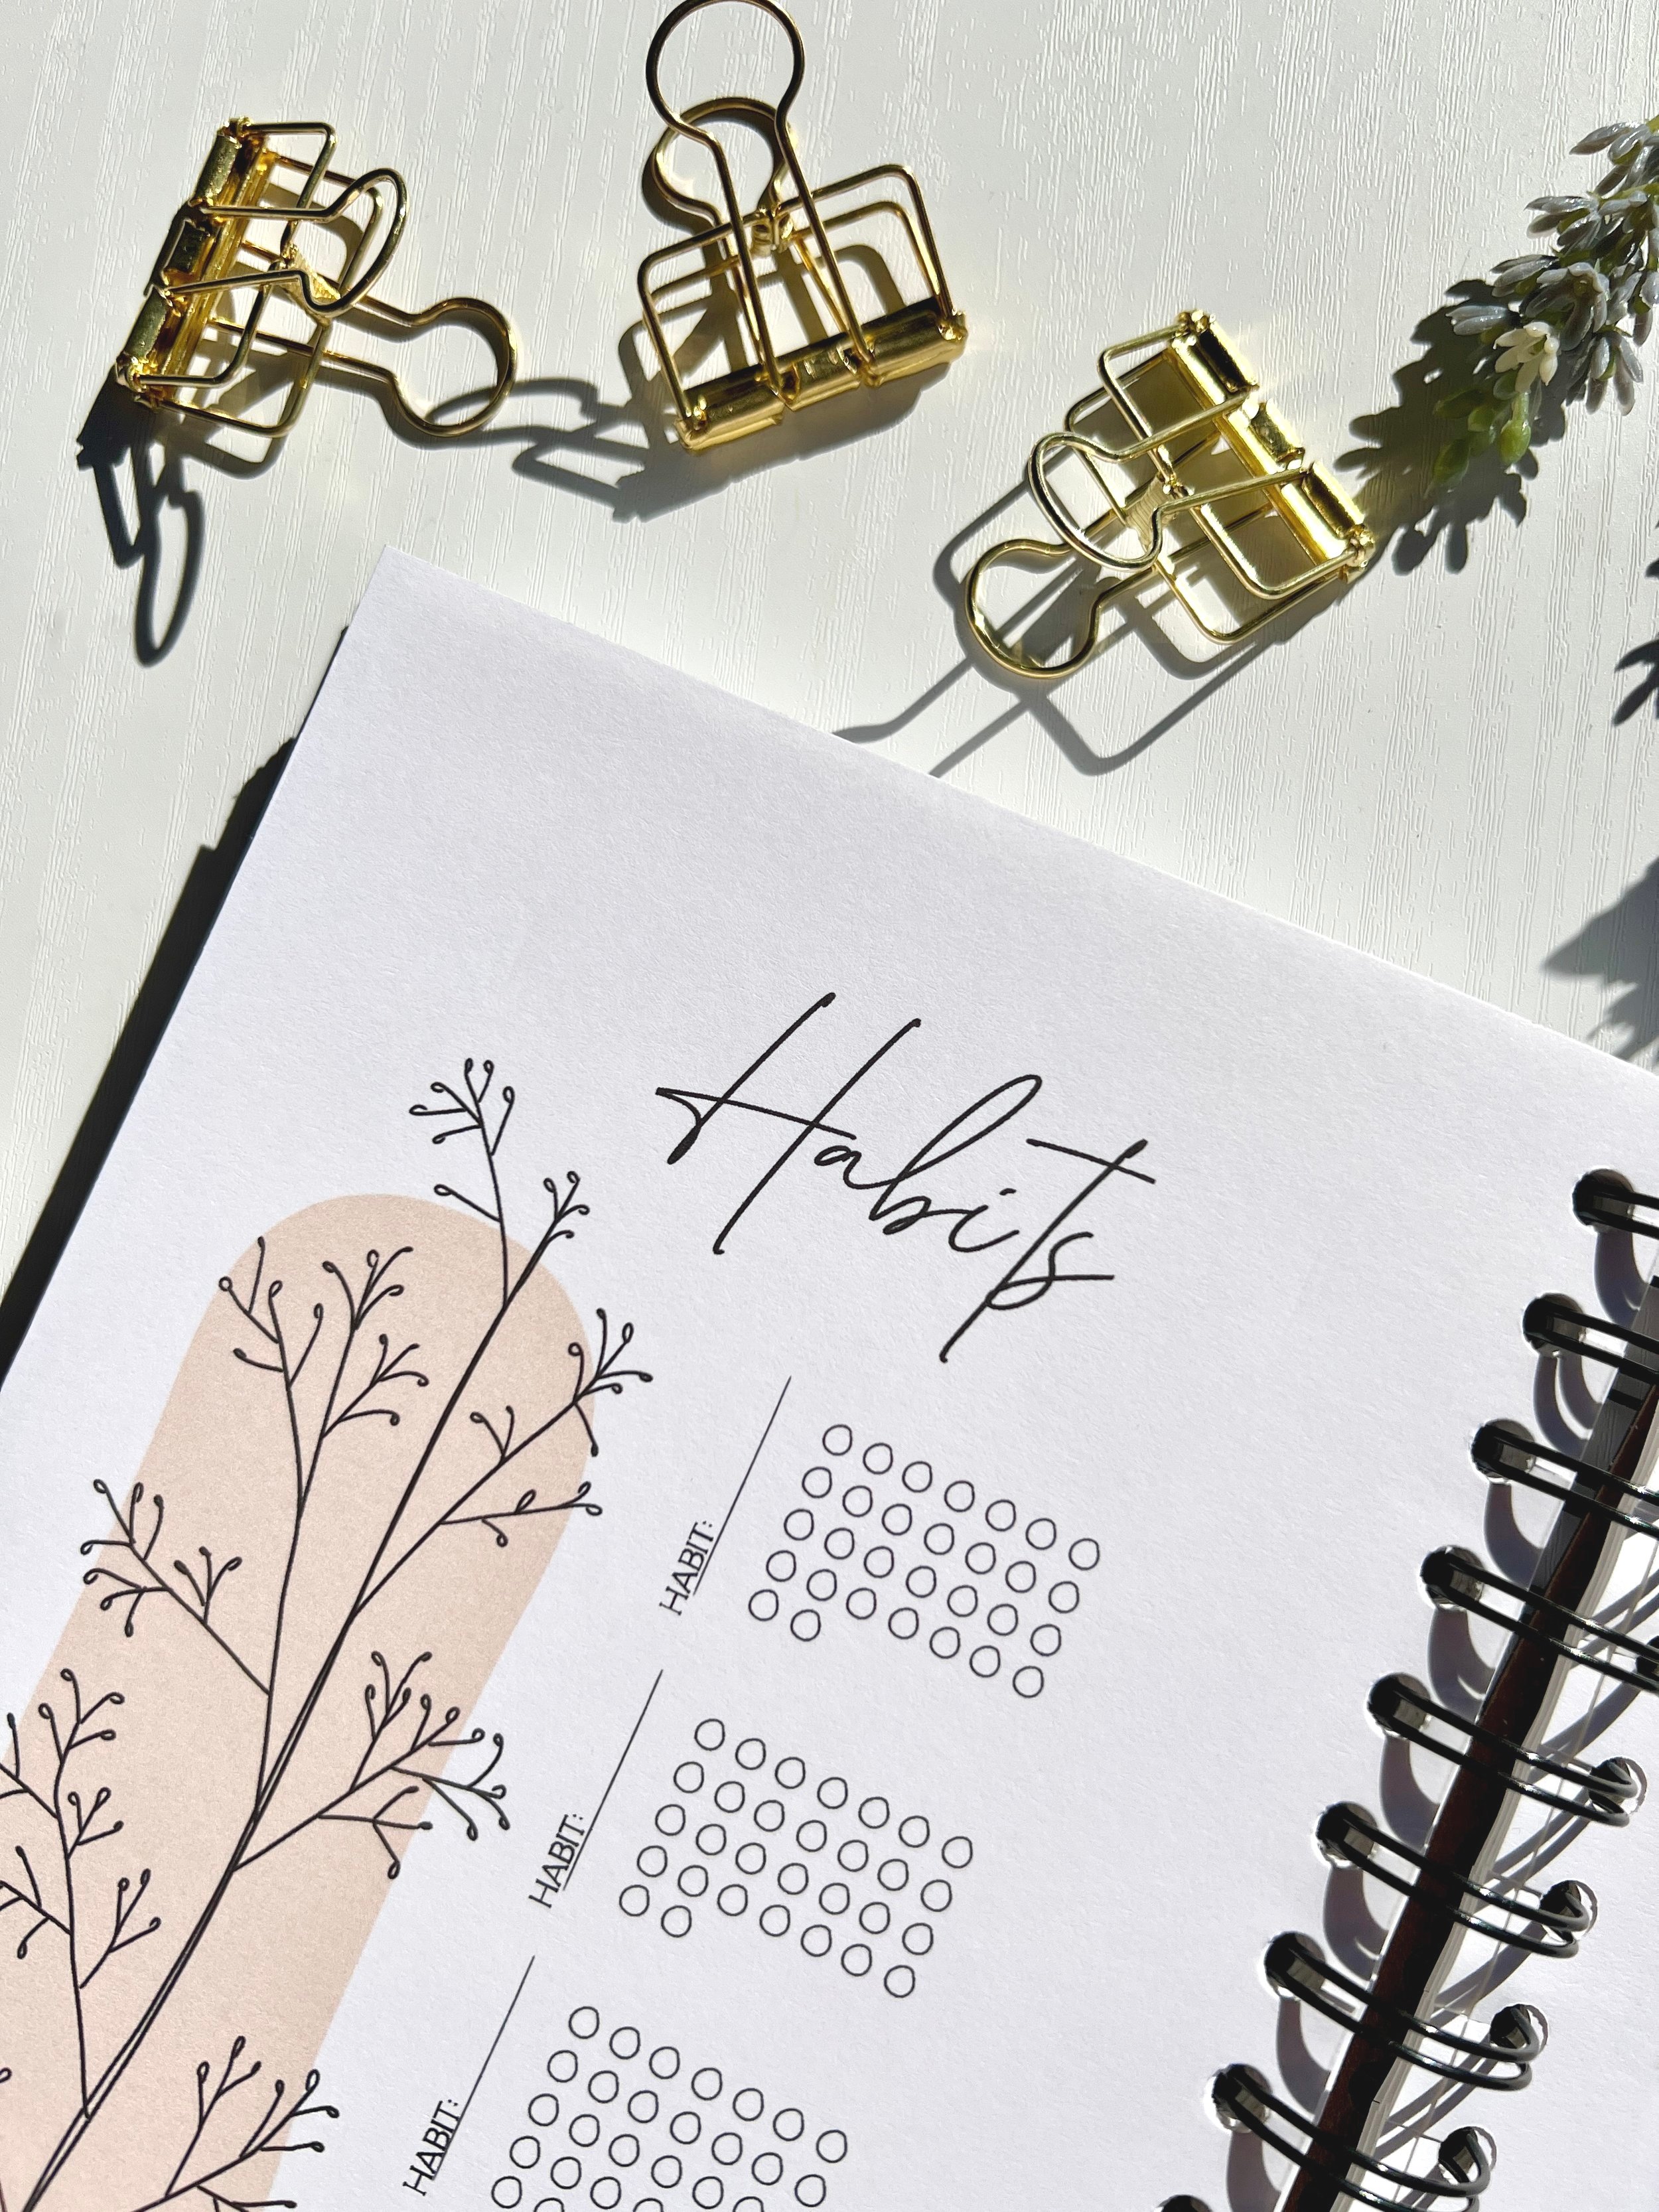 Habits
HABIT:
HABIT:
HABIT: